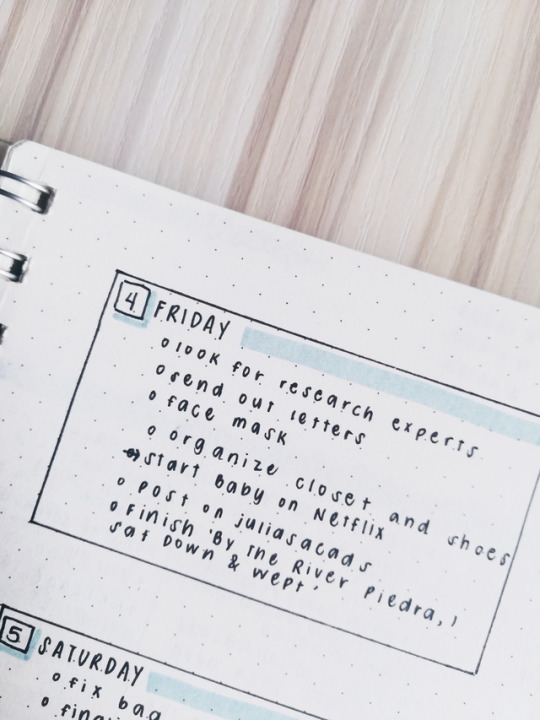 4 FRIDAY
o look for research experts
o send out letters
o face mask
o organize closet and shoes
→ start Baby on Netflix
o post on juliasacads
o Finish 'By the River Piedra, I
sat Down & wept'
5 SATURDAY
o fix bag